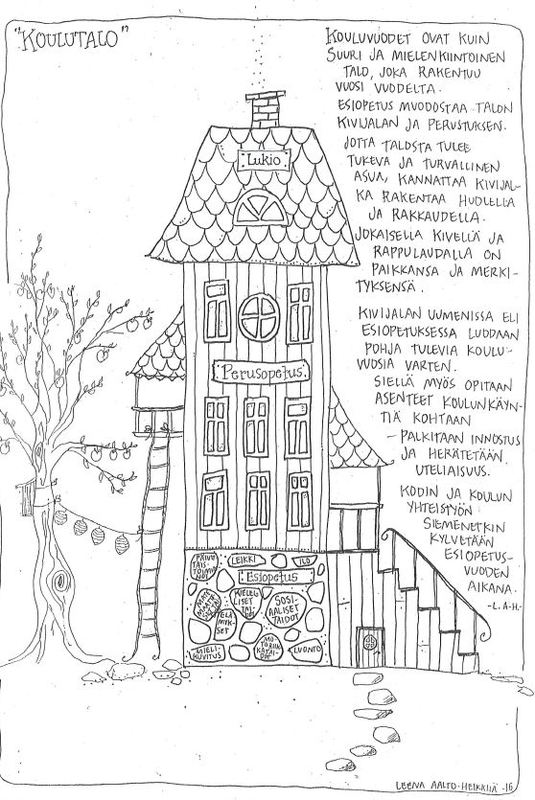 "KOULUTALO"
KOULUVUODET OVAT KUIN
SUURI JA MIELENKIINTOINEN
TALO, JOKA RAKENTUU
VUOSI VUODELTA.
ESIOPETUS MUODOSTAA TALON
KIVIJALAN JA PERUSTUKSEN.
JOTTA TALOSTA TULEE
TUKEVA JA TURVALLINEN
ASUA, KANNATTAA KIVIJAL-
KA RAKENTAA HUOLELLA
JA RAKKAUDELLA.
JOKAISELLA KIVELLÄ JA
RAPPULAUDALLA ON
PAIKKANSA JA MERKI-
TYKSENSÄ.
KIVIJALAN UUMENISSA ELI
ESIOPETUKSESSA LUODAAN
POHJA TULEVIA KOULU-
VUOSIA VARTEN.
SIELLÄ MYÖS OPITAAN
ASENTEET KOULUNKÄYN-
TIÄ KOHTAAN
– PALKITAAN INNOSTUS
JA HERÄTETÄÄN
UTELIAISUUS.
KODIN JA KOULUN
YHTEISTYÖN
SIEMENETKIN
KYLVETÄÄN
ESIOPETUS-
VUODEN
AIKANA.
-L. A-H.-
Lukio
Perusopetus
PÄIVIT
TÄIS
TOIMIN
NOT
LEIKKI
ILO
Esiopetus
KIELEL
LISET
TAI
DOT
SOSI-
AALISET
TAIDOT
ELÄ
MYK-
SET
MIELI-
KUVITUS
MO
TORIIK
KATAI-
DOT
LUONTO
LEENA AALTO-HEIKKILÄ -16